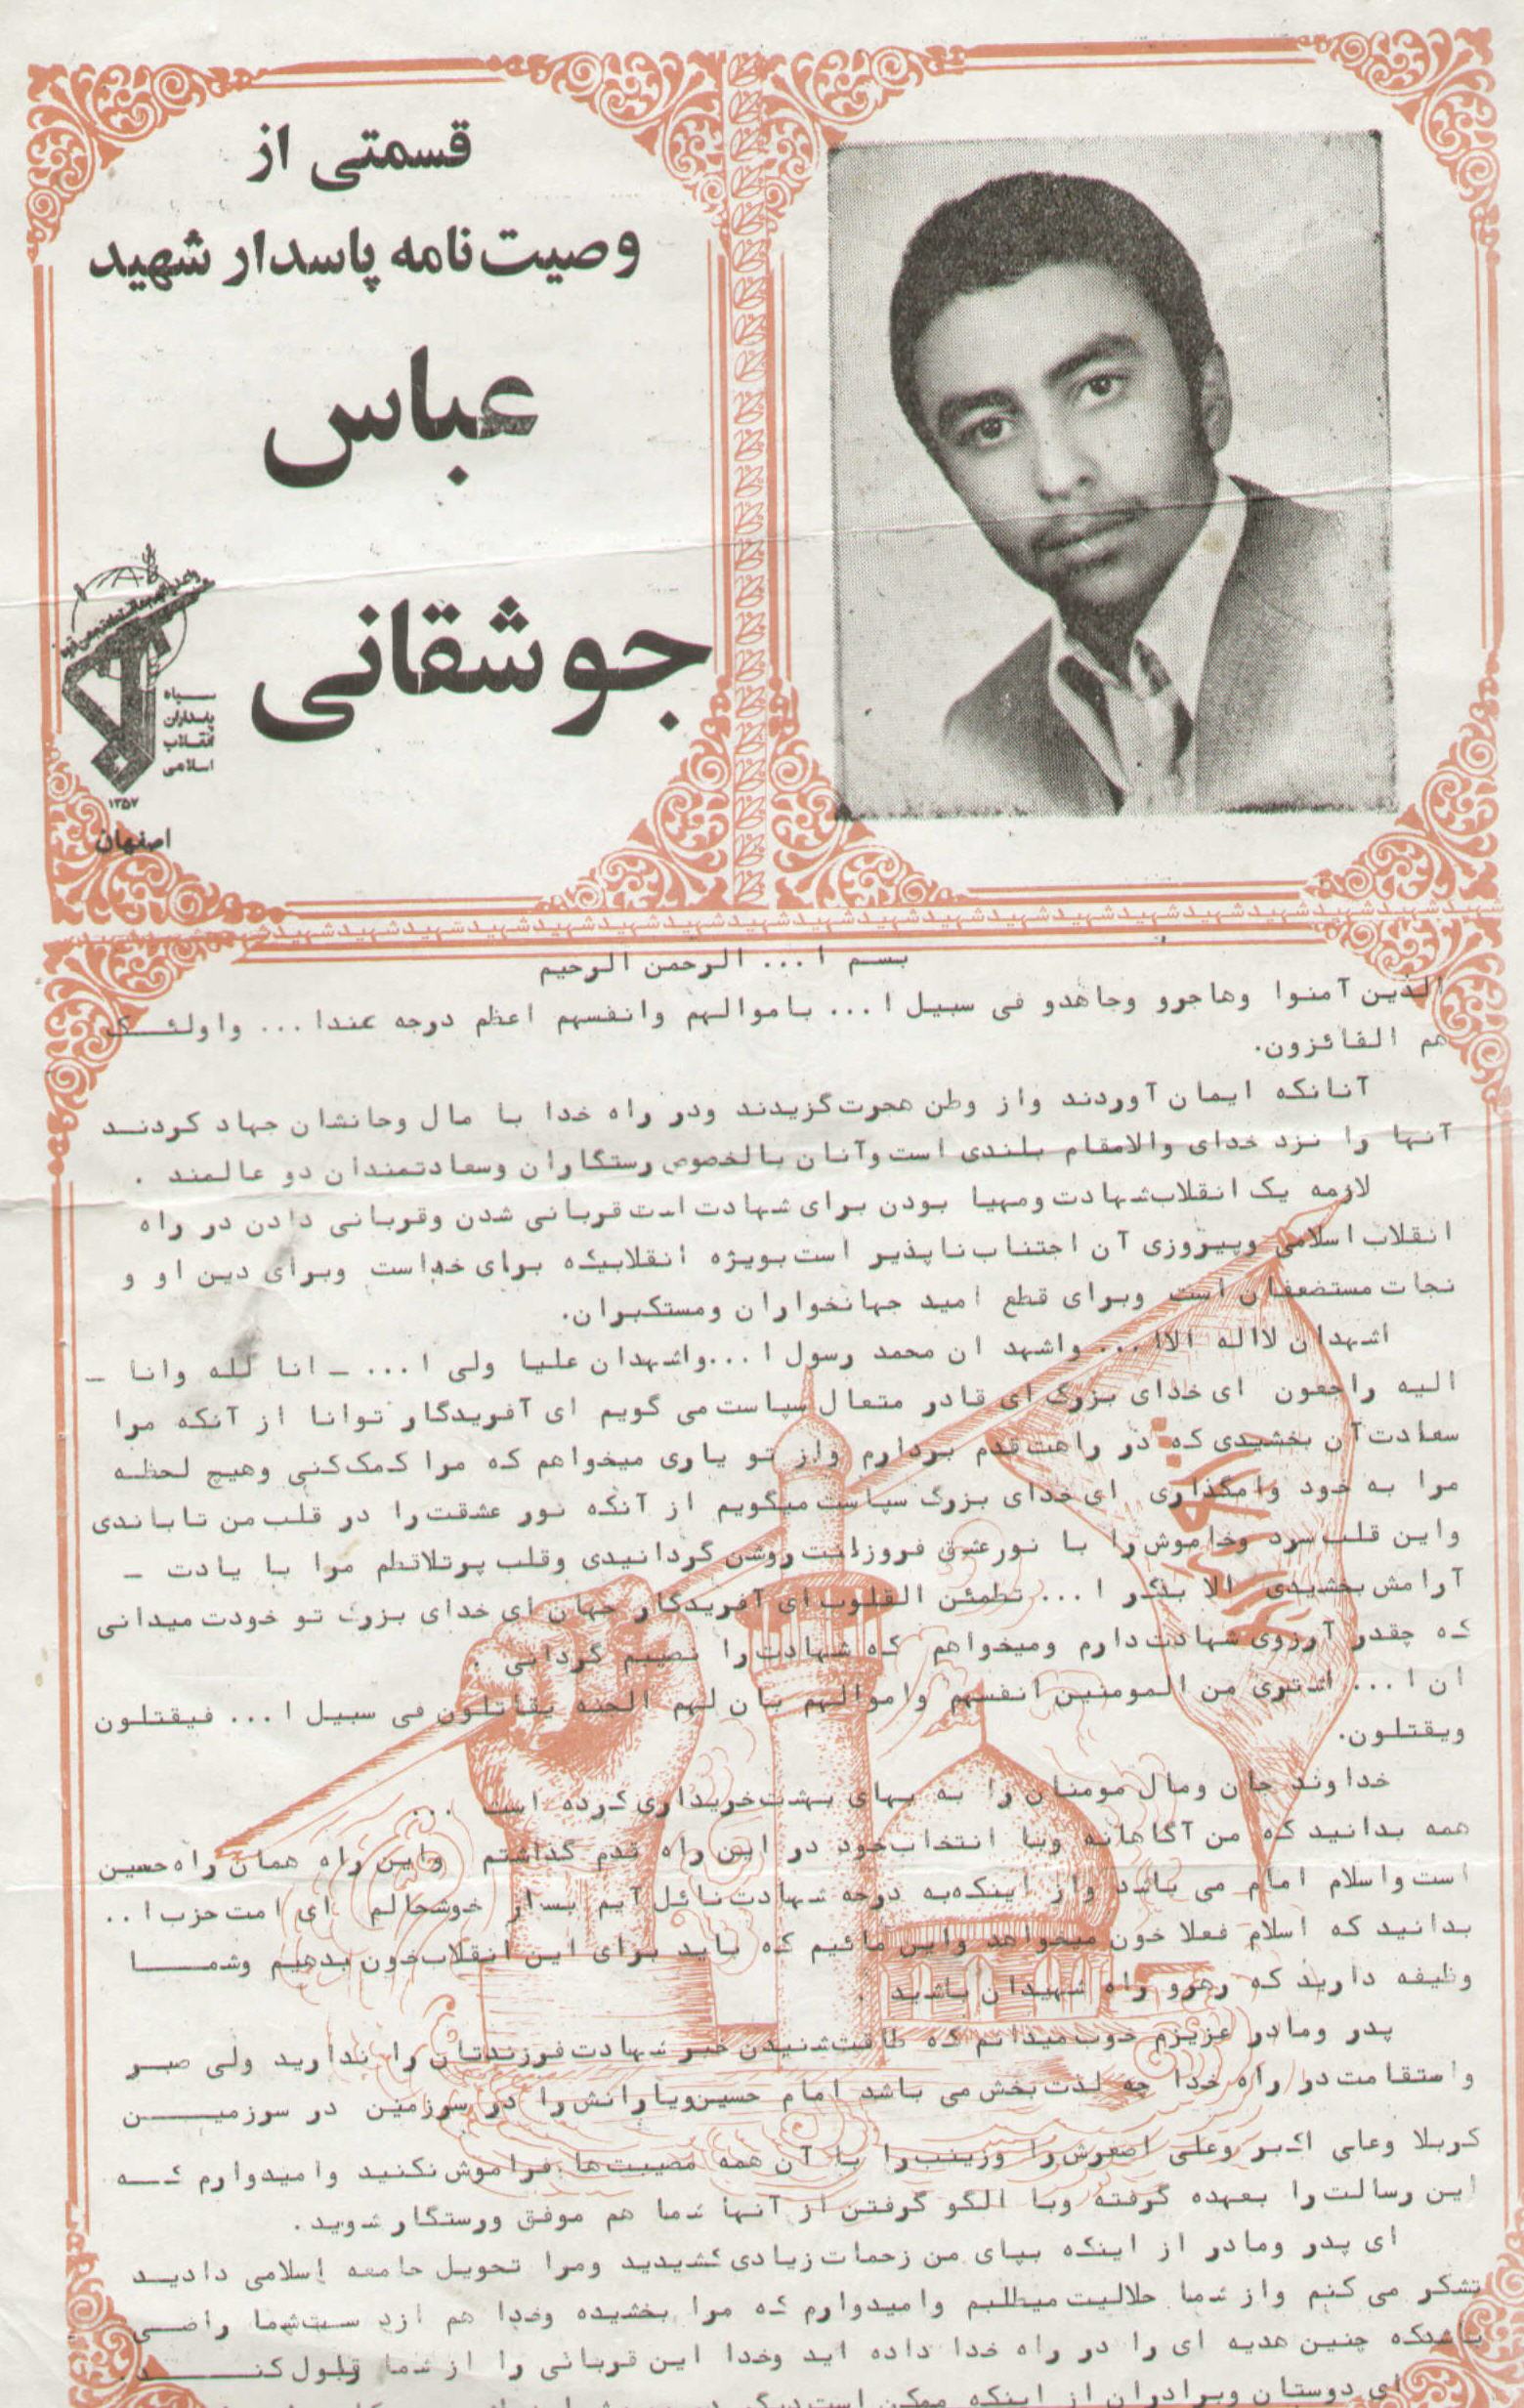 قسمتی از
وصیت‌نامه پاسدار شهید
عباس
جوشقانی
سپاه
پاسداران
انقلاب
اسلامی
۱۳۵۷
اصفهان
شهید شهید شهید شهید شهید شهید شهید شهید شهید شهید شهید شهید
بسم ا... الرحمن الرحیم
الذین آمنوا وهاجرو وجاهدو فی سبیل ا... باموالهم وانفسهم اعظم درجه عندا... واولئک
هم الفائزون.
آنانکه ایمان آوردند واز وطن هجرت‌گزیدند ودر راه خدا با مال وجانشان جهاد کردند
آنها را نزد خدای والامقام بلندی است وآنان بالخصوص رستگاران وسعادتمندان دو عالمند .
لازمه یک انقلاب شهادت ومهیا بودن برای شهادت است قربانی شدن وقربانی دادن در راه
انقلاب اسلامی وپیروزی آن اجتناب‌ناپذیر است بویژه انقلابیکه برای خداست وبرای دین او و
نجات مستضعفان است وبرای قطع امید جهانخواران ومستکبران.
اشهدان لااله الاا... واشهد ان محمد رسول ا...واشهدان علیا ولی ا... - انا لله وانا -
الیه راجعون ای خدای بزرگ ای قادر متعال سپاست می گویم ای آفریدگار توانا از آنکه مرا
سعادت آن بخشیدی که در راهت قدم بردارم واز تو یاری میخواهم که مرا کمک کنی وهیچ لحظه
مرا به خود وامگذاری ای خدای بزرگ سپاست میگویم از آنکه نور عشقت را در قلب من تاباندی
واین قلب سرد وخاموش را با نور عشق فروزانت روشن گردانیدی وقلب پرتلاتطم مرا با یادت -
آرامش بخشیدی الا بذکر ا... تطمئن القلوب ای آفریدگار جهان ای خدای بزرگ تو خودت میدانی
که چقدر آرزوی شهادت دارم ومیخواهم که شهادت را نصیبم گردانی .
ان ا... اشتری من المومنین انفسهم واموالهم بان لهم الجنه یقاتلون فی سبیل ا... فیقتلون
ویقتلون.
خداوند جان ومال مومنان را به بهای بهشت خریداری کرده است ...
همه بدانید که من آگاهانه وبا انتخاب خود در این راه قدم گذاشتم واین راه همان راه حسین
است واسلام امام می باشد واز اینکه به درجه شهادت نائل آیم بسار خوشحالم ای امت حزب ا..
بدانید که اسلام فعلا خون میخواهد واین مائیم که باید برای این انقلاب خون بدهیم وشما
وظیفه دارید که رهرو راه شهیدان باشید .
پدر ومادر عزیزم خوب میدانم که طاقت شنیدن خبر شهادت فرزندتان را ندارید ولی صبر
واستقامت در راه خدا چه لذت بخش می باشد امام حسین ویارانش را در سرزمین در سرزمین
کربلا وعلی اکبر وعلی اصغرش را وزینب را با آن همه مصیبت‌ها فراموش نکنید وامیدوارم که
این رسالت را بعهده گرفته وبا الگو گرفتن از آنها شما هم موفق ورستگار شوید.
ای پدر ومادر از اینکه بپای من زحمات زیادی کشیدید ومرا تحویل جامعه اسلامی دادید
تشکر می کنم واز شما حلالیت میطلبم وامیدوارم که مرا بخشیده وخدا هم ازد ست شما راضی
باشدکه چنین هدیه ای را در راه خدا داده اید وخدا این قربانی را از شما قبول کند.
ای دوستان وبرادران از اینکه ممکن است دیگر